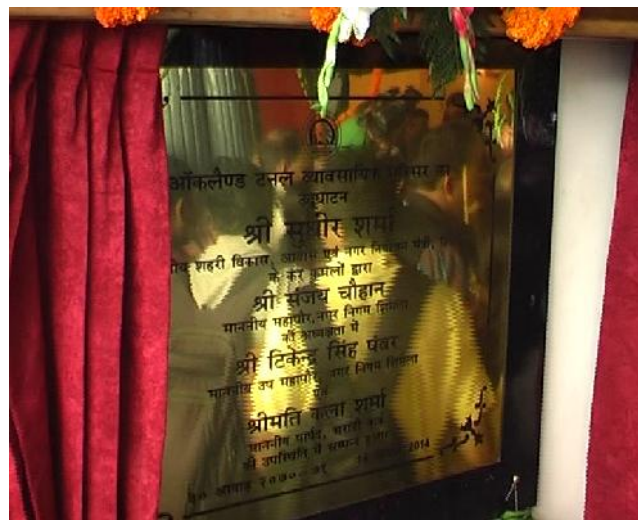 ऑकलैण्ड टनल व्यावसायिक परिसर का
उद्घाटन
श्री सुधीर शर्मा
शहरी विकास, आवास एवं नगर नियोजन मंत्री,
के कर कमलों द्वारा
श्री संजय चौहान
माननीय महापौर, नगर निगम शिमला
की अध्यक्षता में
श्री टिकेन्द्र सिंह पंवर
माननीय उप महापौर, नगर निगम शिमला
एवं
श्रीमति कला शर्मा
माननीय पार्षद,
की उपस्थिति में सम्पन्न हुआ
२०७० 2014